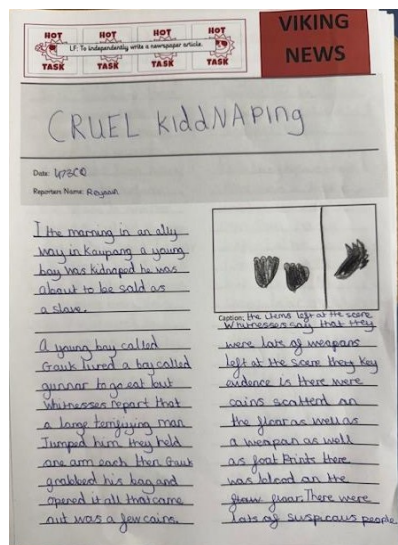 HOT HOT HOT HOT
LF: To independently write a newspaper article.
TASK TASK TASK TASK
VIKING
NEWS
CRUEL kiddNAPing
Date: 473CO
Reporters Name: Reyaan
I the marning in an ally
way in Kaupang a young
bay was kidnaped he was
about to be sald as
a slave.
A young bay called
Gauk lured a bay called
gunnar to go eat but
whitnesses repart that
a large terrifuying man
Jumped him they held
one arm each then Gauk
grabbed his bag and
opened it all that came
out was a few cains.
Caption: the items left at the scene
Whitnesses say that they
were lats of weapans
left at the scene they key
evidence is there were
cains scatterd an
the flaar as well as
a weapan as well
as foat Prints there
was blaad an the
flaar. There were
lats of suspicaus peaple